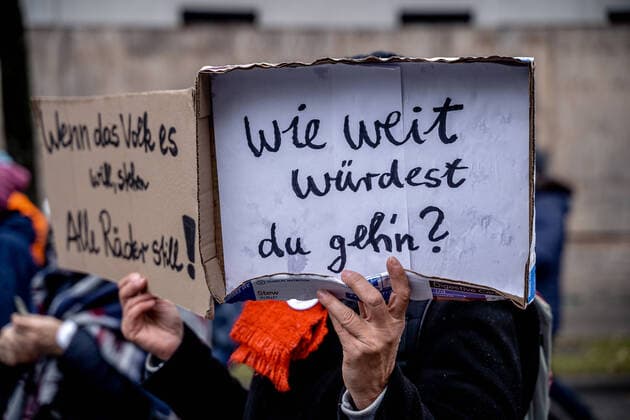 Wenn das Volk es
will, stehen
Alle Räder still!
Wie weit
würdest
du geh'n?
Stew
Digestive